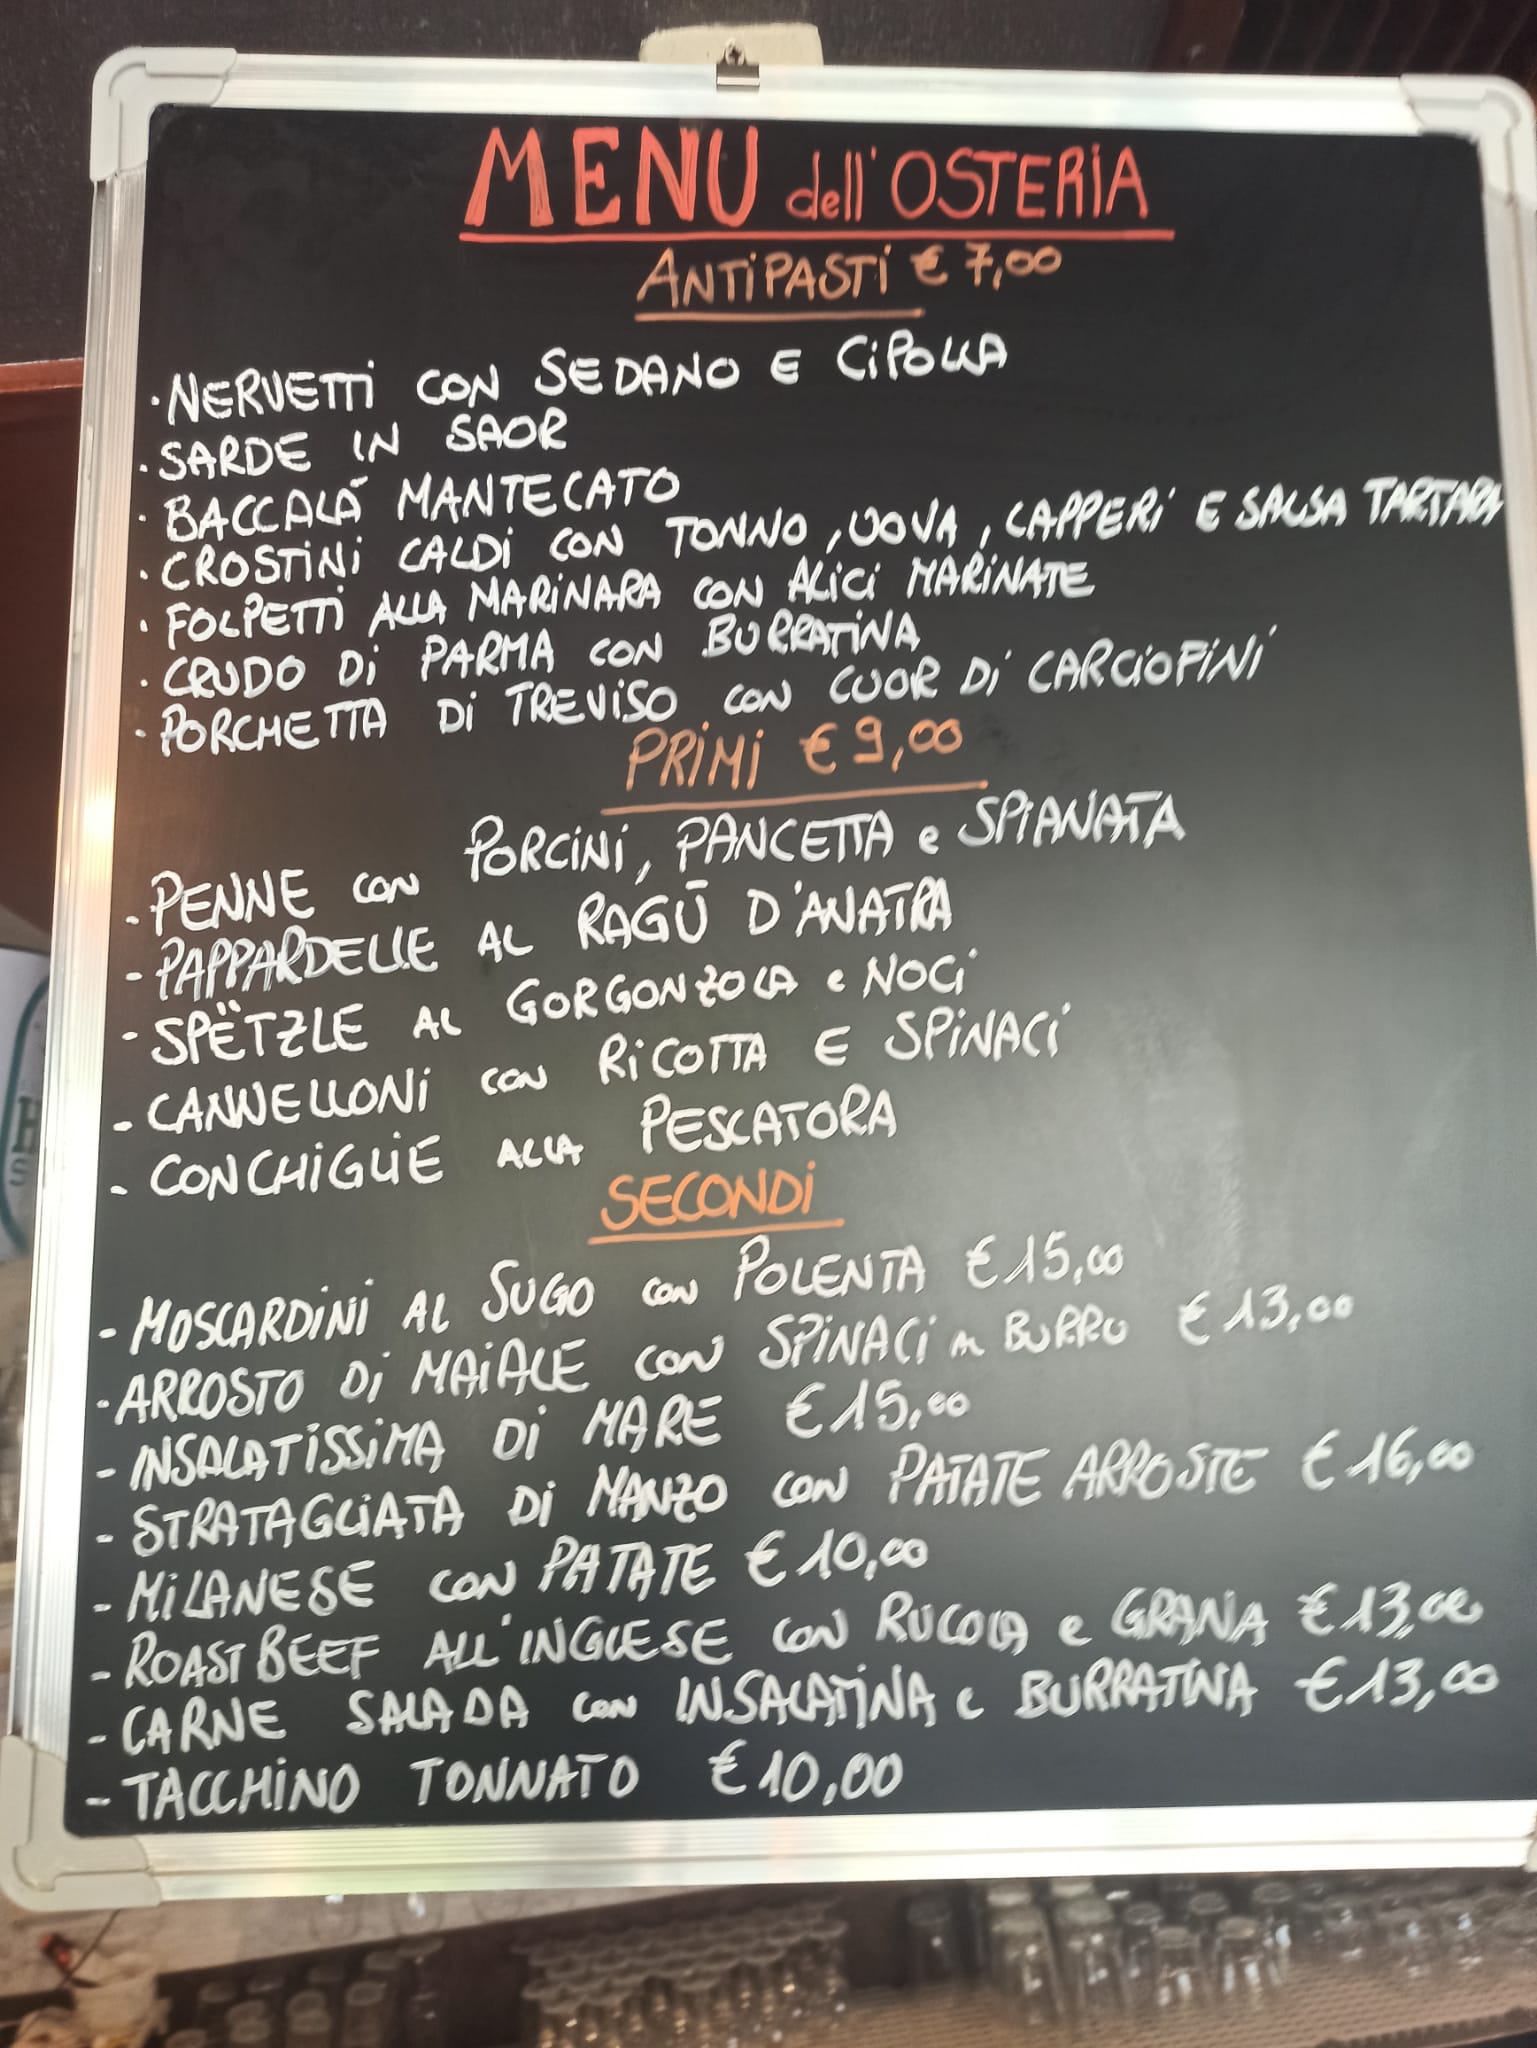 MENU dell'OSTERIA
ANTIPASTI € 7,00
• NERVETTI CON SEDANO E CIPOLLA
• SARDE IN SAOR
• BACCALÀ MANTECATO
• CROSTINI CALDI CON TONNO, UOVA, CAPPERI E SALSA TARTARA
• FOLPETTI ALLA MARINARA CON ALICI MARINATE
• CRUDO DI PARMA CON BURRATINA
• PORCHETTA DI TREVISO CON CUOR DI CARCIOFINI
PRIMI € 9,00
- PENNE CON PORCINI, PANCETTA e SPIANATA
- PAPPARDELLE AL RAGŪ D'ANATRA
- SPËTZLE AL GORGONZOLA e NOCI
- CANNELLONI CON RICOTTA E SPINACI
- CONCHIGLIE ALLA PESCATORA
SECONDI
- MOSCARDINI AL SUGO CON POLENTA € 15,00
- ARROSTO DI MAIALE CON SPINACI AL BURRO € 13,00
- INSALATISSIMA DI MARE € 15,00
- STRATAGLIATA DI MANZO CON PATATE ARROSTE € 16,00
- MILANESE CON PATATE € 10,00
- ROAST BEEF ALL'INGLESE CON RUCOLA e GRANA € 13,00
- CARNE SALADA CON INSALATINA e BURRATINA € 13,00
- TACCHINO TONNATO € 10,00